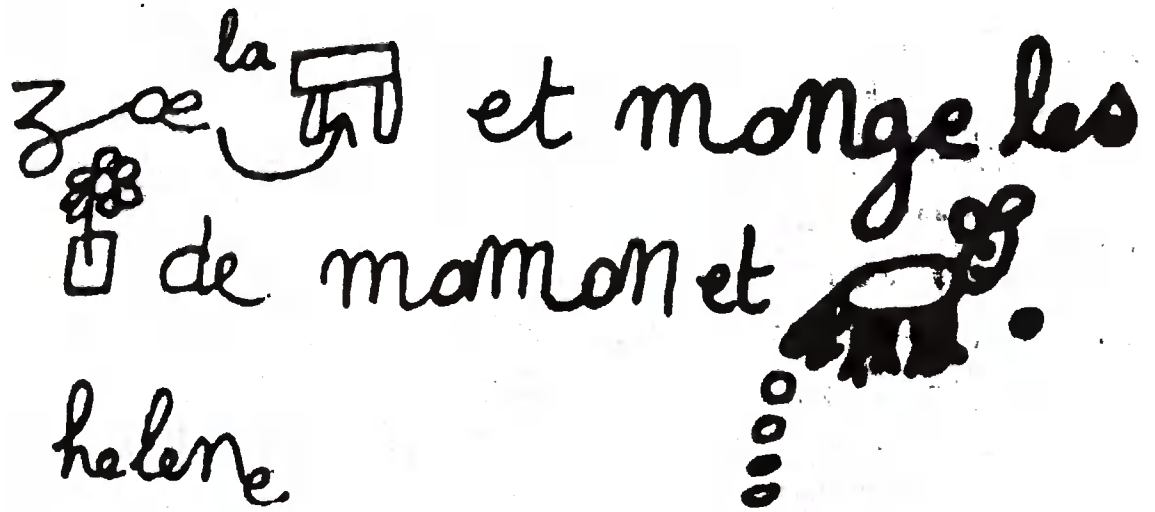 la et monge les
de momon et .
helene